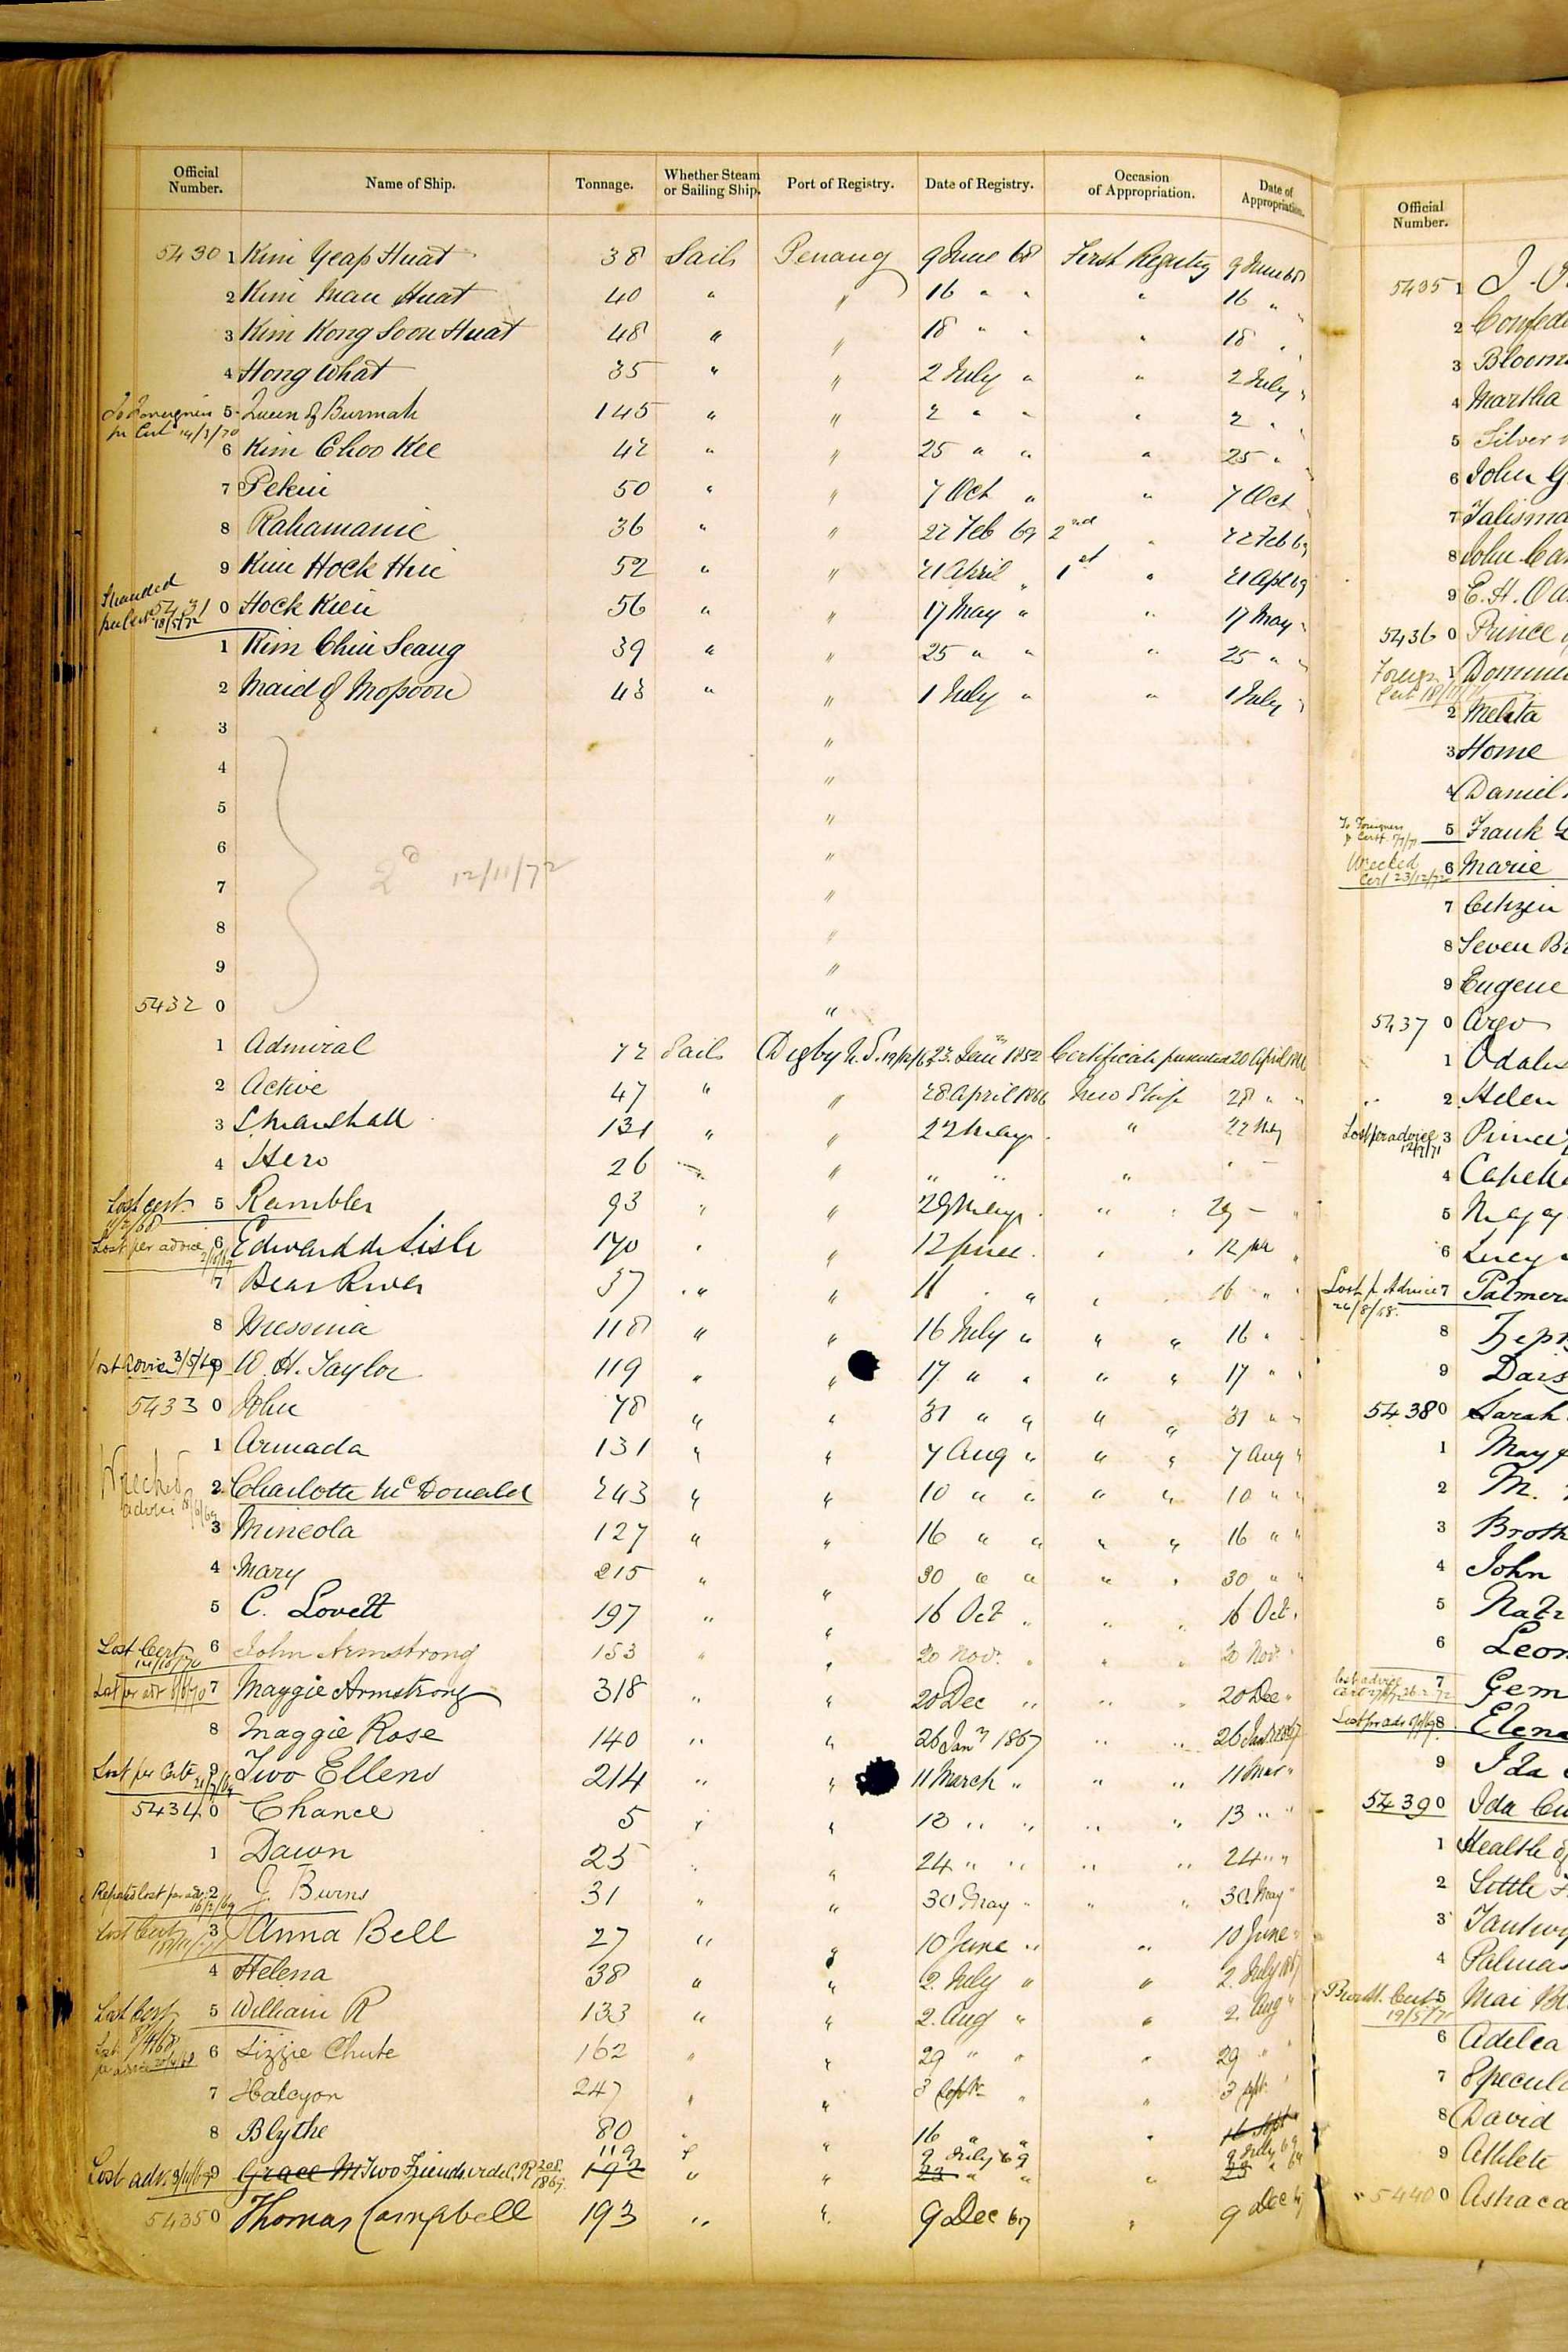 Official Number. Name of Ship. Tonnage. Whether Steam or Sailing Ship. Port of Registry. Date of Registry. Occasion of Appropriation. Date of Appropriation.
5430 1 Kim Yeap Huat 38 Sails Penang 9 June 68 First Registry 9 June 68
2 Kim Mau Huat 40 " " 16 " " " 16 " "
3 Kim Kong Soon Huat 48 " " 18 " " " 18 " "
4 Hong What 35 " " 2 July " " 2 July "
To Foreigners pr Cert 14/3/70 5 Queen of Burmah 145 " " 2 " " " 2 " "
6 Kim Choo Kee 42 " " 25 " " " 25 " "
7 Pekin 50 " " 7 Oct " " 7 Oct
8 Rahamanie 36 " " 22 Feb 69 2nd " 22 Feb 69
9 Kim Hock Hin 52 " " 21 April " 1st " 21 Apl 69
Stranded per Cert 18/5/72 5431 0 Hock Kien 56 " " 17 May " " 17 May "
1 Kim Chin Seang 39 " " 25 " " " 25 " "
2 Maid of Mopoon 43 " " 1 July " " 1 July "
3 "
4 "
5 "
6 "
7 " 12/11/72
8 "
9 "
5432 0 "
1 Admiral 72 Sails Digby N.S. 23 Jany 1852 Certificate presented 20 April
2 Active 47 " " 28 April 1866 New Ship 28 " "
3 S. Marshall 131 " " 22 May " 22 May
4 Hero 26 " " " " "
Lost cert 5 Rambler 93 " " 29 May " " 29 "
Lost per advice 6 Edward de Lisle 170 " " 12 June " " 12 June "
7 Bear River 37 " " " " 16 " "
8 Messina 118 " " 16 July " " " 16 "
Lost advice 3/5/69 9 W. H. Taylor 119 " " 17 " " " " 17 " "
5433 0 John 78 " " 31 " " " " 31 " "
1 Armada 131 " " 7 Aug " " " 7 Aug "
Wrecked advice 2 Charlotte McDonald 243 " " 10 " " " " 10 " "
3 Mineola 127 " " 16 " " " " 16 " "
4 Mary 215 " " 30 " " " " 30 " "
5 C. Lovett 197 " " 16 Oct " " " 16 Oct.
Lost Cert 14/10/70 6 John Armstrong 153 " " 20 Nov. " " " 20 Nov. "
Lost pr adv 7 Maggie Armstrong 318 " " 20 Dec " " " 20 Dec "
8 Maggie Rose 140 " " 26 Jany 1867 " " 26 Jan 1867
Lost per Certe 21/7/69 9 Two Ellens 214 " " 11 March " " " 11 Mar "
5434 0 Chance 5 " " 13 " " " " 13 " "
1 Dawn 25 " " 24 " " " " 24 " "
Reported lost per adv. 16/2/69 2 J. Burns 31 " " 30 May " " " 30 May "
Lost Cert 3 Anna Bell 27 " " 10 June " " 10 June "
4 Helena 38 " " 2. July " " 2. July 1867
Lost Cert 8/4/68 5 William R 133 " " 2. Aug " " 2. Aug "
Lost pr advice 6 Lizzie Chute 162 " " 29 " " " 29 " "
7 Halcyon 247 " " 3 Septr " " 3 Sept. "
8 Blythe 80 " " 16 " " " 16 Sept "
Lost adv. 9 Grace M Two Friends 1869 119 192 " " 9 July 69 23 " " " 9 July 69 23 " "
5435 0 Thomas Campbell 193 " " 9 Dec 67 " 9 Dec 67
Official Number.
5435 1
2 Confed
3 Bloom
4 Martha
5 Silver
6 John G
7 Talisma
8 John Ca
9 E. H. Oa
5436 0 Prince
Foreign Cert 1 Domini
2 Melita
3 Home
4 Daniel
To Foreigners p Certf. 5 Frank
Wrecked Cert 23/12/72 6 Marie
7 Citizen
8 Seven Br
9 Eugene
5437 0 Argo
1 Odales
2 Helen
Lost per advice 3 Prince
4 Capell
5 May
6 Lucy
Lost p Advice 26/8/68 7 Palmer
8 Zeph
9 Dais
5438 0 Sarah
1 May
2 M.
3 Broth
4 John
5 Nat
6 Leon
Lost advice 7 Gem
Lost per adv 8 Elena
9 Ida
5439 0 Ida
1 Health of
2 Lottle
3 Tantivy
4 Palmas
Burnt. Cert 19/5/71 5 Mai
6 Adelea
7 Specul
8 David
9 Athlete
5440 0 Ashaca